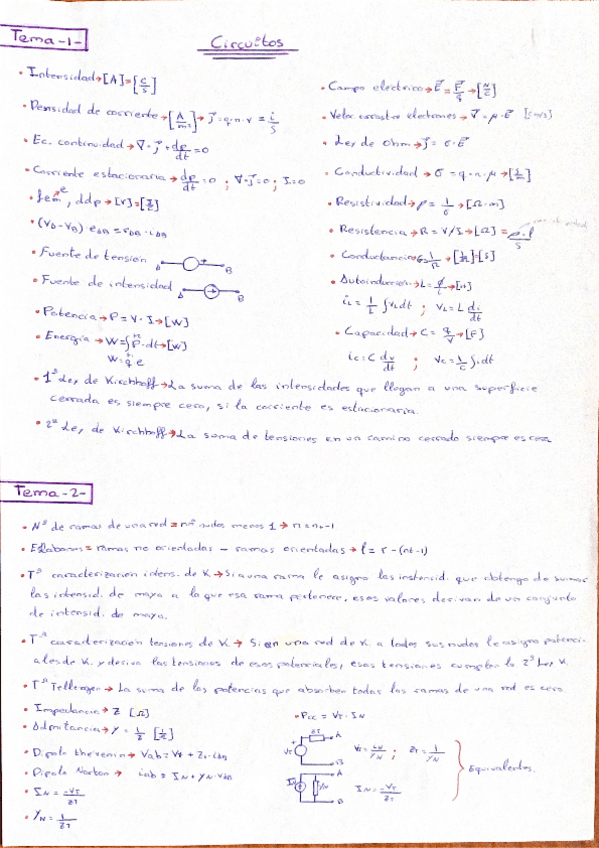 Tema-1-
Circuitos
• Intensidad→[A]=[C/s]
• Densidad de corriente→[A/m²]→ j⃗=q·n·v = i/S
• Ec. continuidad→ ∇·j⃗+dρ/dt=0
• Corriente estacionaria→ dρ/dt=0 ; ∇·j⃗=0 ;
• fem, ddp→[V]=[J/C]
• Fuente de tensión
A B
• Fuente de intensidad
A B
• Potencia→P=V·I→[W]
• Energía→W=∫P·dt→[W]
• Campo electrico→E⃗=F⃗/q→[N/C]
• Veloc arrastre electrones→ v⃗=μ·E⃗ [m/s]
• Ley de Ohm→ j⃗=σ·E⃗
• Conductividad→ σ=q·n·μ→
• Resistividad→ρ=1/σ→[Ω·m]
• Resistencia→R=V/I→[Ω]=ρ·l/S
• Conductancia
• Autoinduccion→L=ϕ/i→[H]
iL=1/L ∫vLdt ; VL=L di/dt
• Capacidad→C=q/V→[F]
ic=C dv/dt ; Vc=1/C ∫i·dt
• 1ª Ley de Kirchhoff→La suma de las intensidades que llegan a una superficie
cerrada es siempre cero, si la corriente es estacionaria.
• 2ª Ley de Kirchhoff→La suma de tensiones en un camino cerrado siempre es cero
Tema-2-
• Nº de ramas de una red = nº nudos menos 1→
• Eslabones = ramas no orientadas - ramas orientadas→ l = r-(nt-1)
• Tª caracterizacion intens. de K.→Si a una rama le asigno las intensid. que obtengo de sumar
las intensid. de maya a la que esa rama pertenece, esos valores derivan de un conjunto
de intensid. de maya.
• Tª caracterización tensiones de K.→ Si en una red de K. a todos sus nudos le asigno potenci-
ales de K. y deriva las tensiones de esos potenciales, esas tensiones cumplen la 2ª Ley K.
• Tª Tellengen→ La suma de las potencias que absorben todas las ramas de una red es cero
• Impedancia→Z [Ω]
• Admitancia→Y=1/Z
• Dipolo thevenin→
• Dipolo Norton→
• IN=-VT/ZT
• YN=1/ZT
• Pcc = VT·IN
ZT A
VT
B
VT=IN/YN ; ZT=1/YN
A
YN
B
IN=-VT/ZT
Equivalentes.